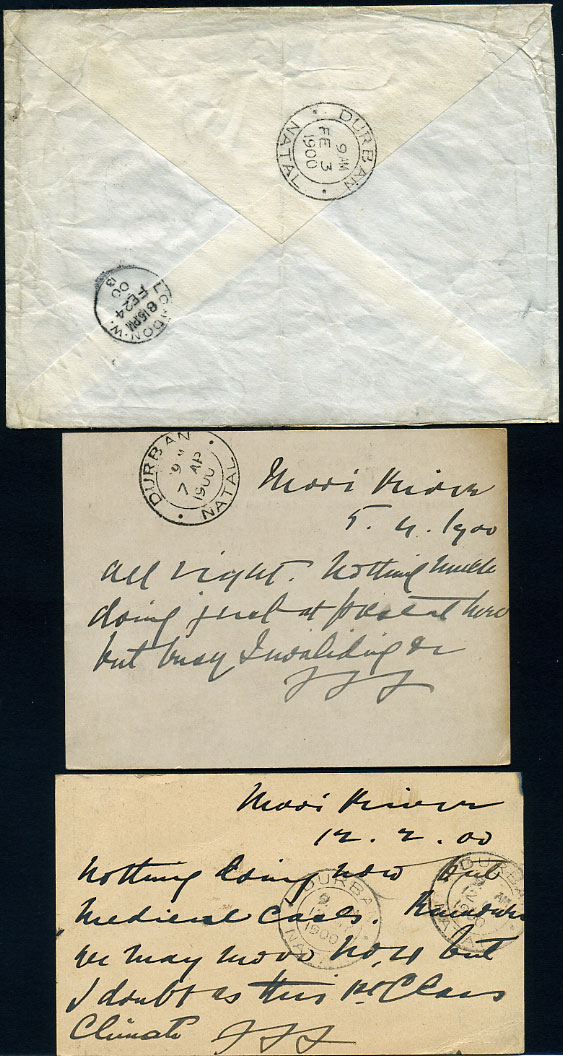 DURBAN
9 AM
FE 3
1900
NATAL
LONDON. W.
8 15 PM
FE 24
00
DURBAN
9
7 AP
1900
NATAL
Mooi River
5. 4. 1900
All right. Nothing much
doing just at present here
but busy Invaliding &c
Mooi River
12. 2. 00
Nothing doing now but
Medical Cases.
we may move No. 4 but
I doubt as this 1st Class
Climate
DURBA
9
1900
DURBA
9 AM
1900